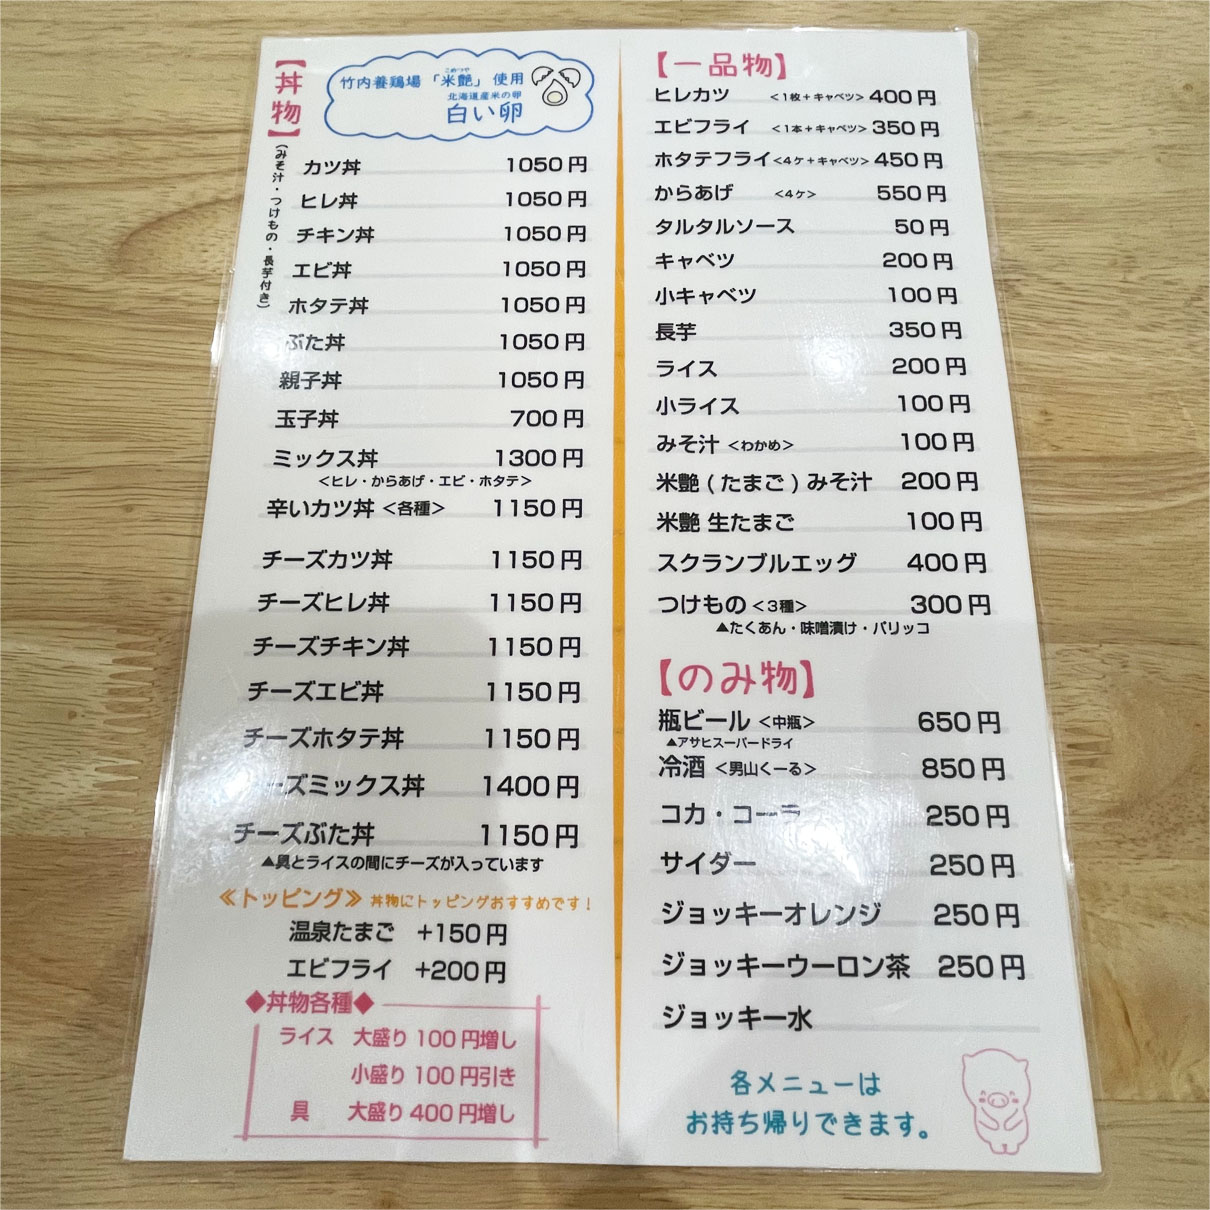 【丼物】
(みそ汁・つけもの・長芋付き)
竹内養鶏場「米艶」使用
こめつや
北海道産米の卵
白い卵
カツ丼 1050円
ヒレ丼 1050円
チキン丼 1050円
エビ丼 1050円
ホタテ丼 1050円
ぶた丼 1050円
親子丼 1050円
玉子丼 700円
ミックス丼 1300円
<ヒレ・からあげ・エビ・ホタテ>
辛いカツ丼 <各種> 1150円
チーズカツ丼 1150円
チーズヒレ丼 1150円
チーズチキン丼 1150円
チーズエビ丼 1150円
チーズホタテ丼 1150円
チーズミックス丼 1400円
チーズぶた丼 1150円
▲具とライスの間にチーズが入っています
≪トッピング≫ 丼物にトッピングおすすめです!
温泉たまご +150円
エビフライ +200円
◆丼物各種◆
ライス 大盛り100円増し
小盛り100円引き
具 大盛り400円増し
【一品物】
ヒレカツ <1枚+キャベツ> 400円
エビフライ <1本+キャベツ> 350円
ホタテフライ <4ケ+キャベツ> 450円
からあげ <4ケ> 550円
タルタルソース 50円
キャベツ 200円
小キャベツ 100円
長芋 350円
ライス 200円
小ライス 100円
みそ汁 <わかめ> 100円
米艶(たまご)みそ汁 200円
米艶 生たまご 100円
スクランブルエッグ 400円
つけもの <3種> 300円
▲たくあん・味噌漬け・パリッコ
【のみ物】
瓶ビール <中瓶> 650円
▲アサヒスーパードライ
冷酒 <男山くーる> 850円
コカ・コーラ 250円
サイダー 250円
ジョッキーオレンジ 250円
ジョッキーウーロン茶 250円
ジョッキー水
各メニューは
お持ち帰りできます。